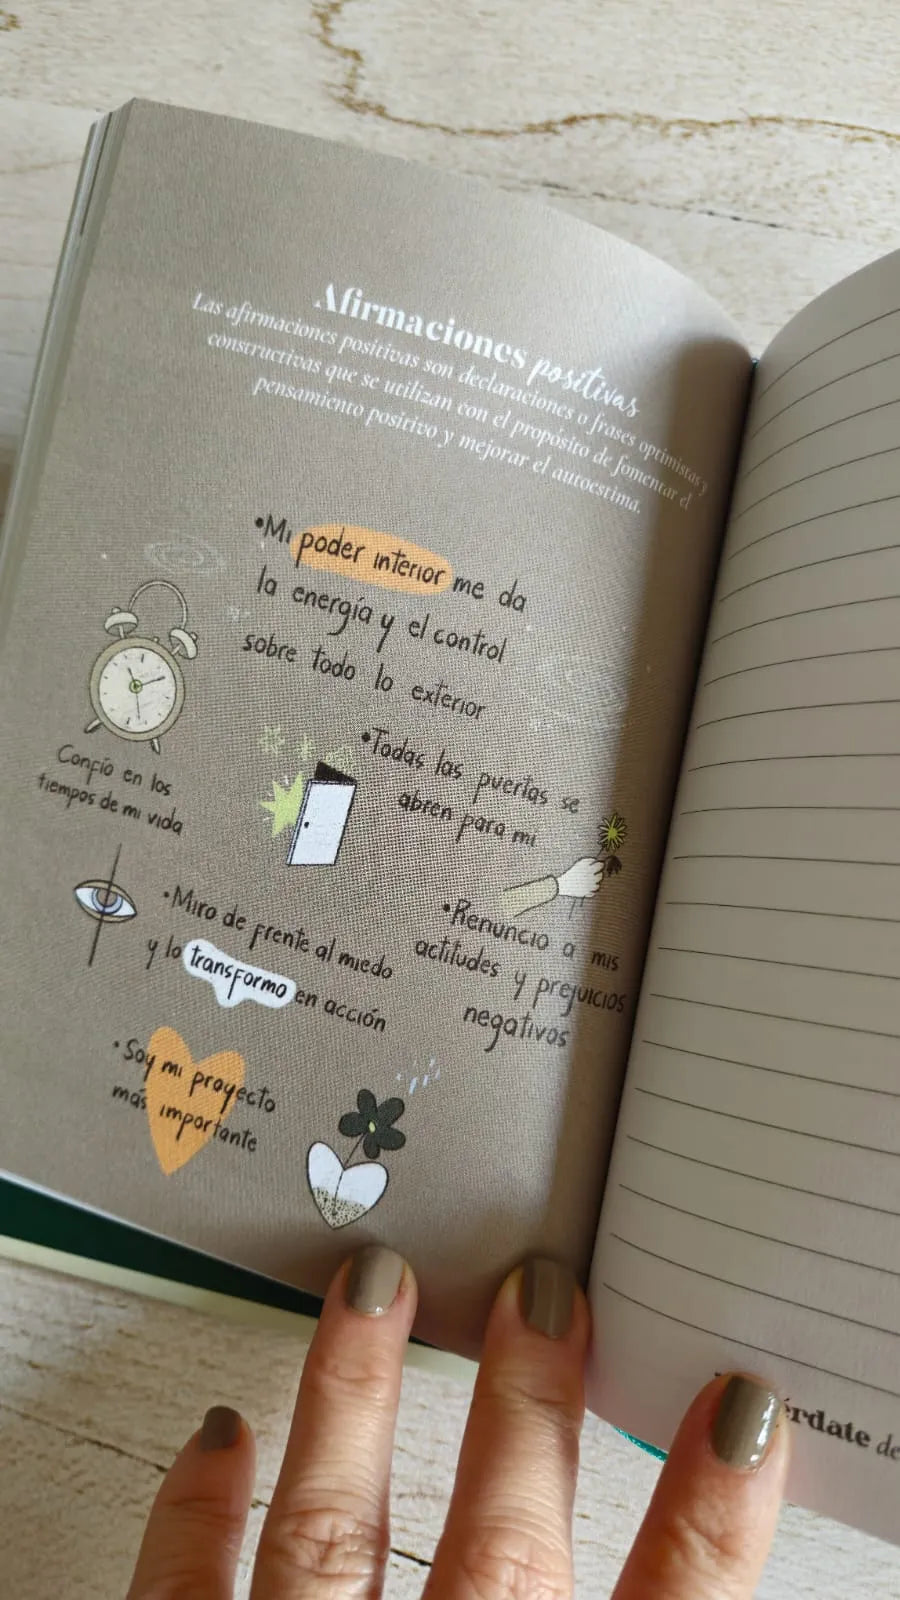 Afirmaciones positivas
Las afirmaciones positivas son declaraciones o frases optimistas y
constructivas que se utilizan con el propósito de fomentar el
pensamiento positivo y mejorar el autoestima.
•Mi poder interior me da
la energía y el control
sobre todo lo exterior
•Todas las puertas se
abren para mi
Confío en los
tiempos de mi vida
•Miro de frente al miedo
y lo transformo en acción
•Renuncio a mis
actitudes y prejuicios
negativos
•Soy mi proyecto
más importante